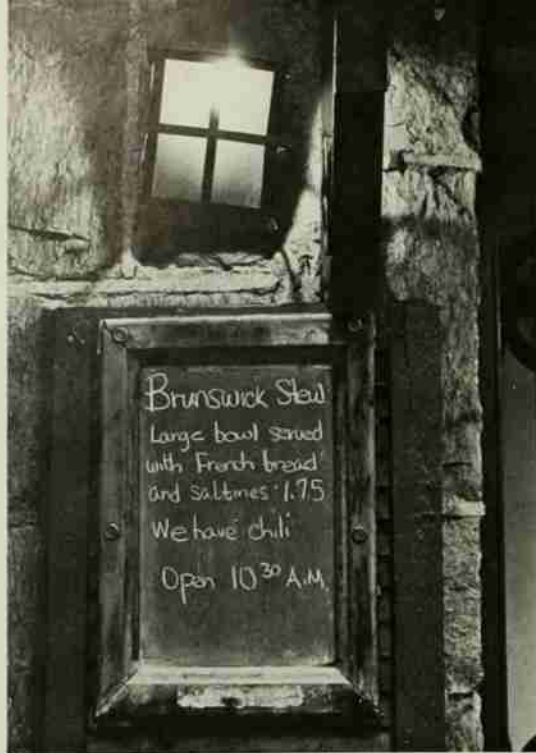 Brunswick Stew
Large bowl served
with French bread
and saltines 1.75
We have chili
Open 10³⁰ A.M.